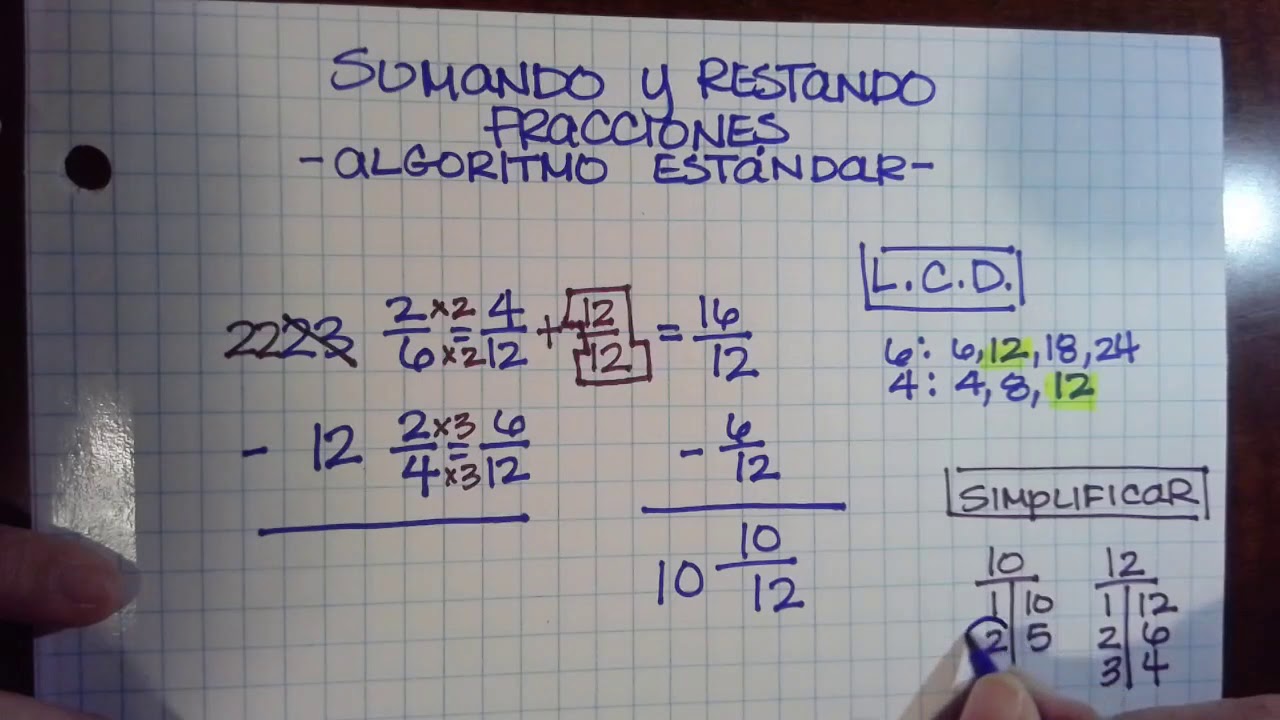 SUMANDO Y RESTANDO
FRACCIONES
-ALGORITMO ESTÁNDAR-
L.C.D.
6: 6, 12, 18, 24
4: 4, 8, 12
22 23 2/6 ×2 = ×2 4/12 + 12/12 = 16/12
- 12 2/4 ×3 = ×3 6/12 - 6/12
10 10/12
SIMPLIFICAR
10 12
1 10 1 12
2 5 2 6
3 4